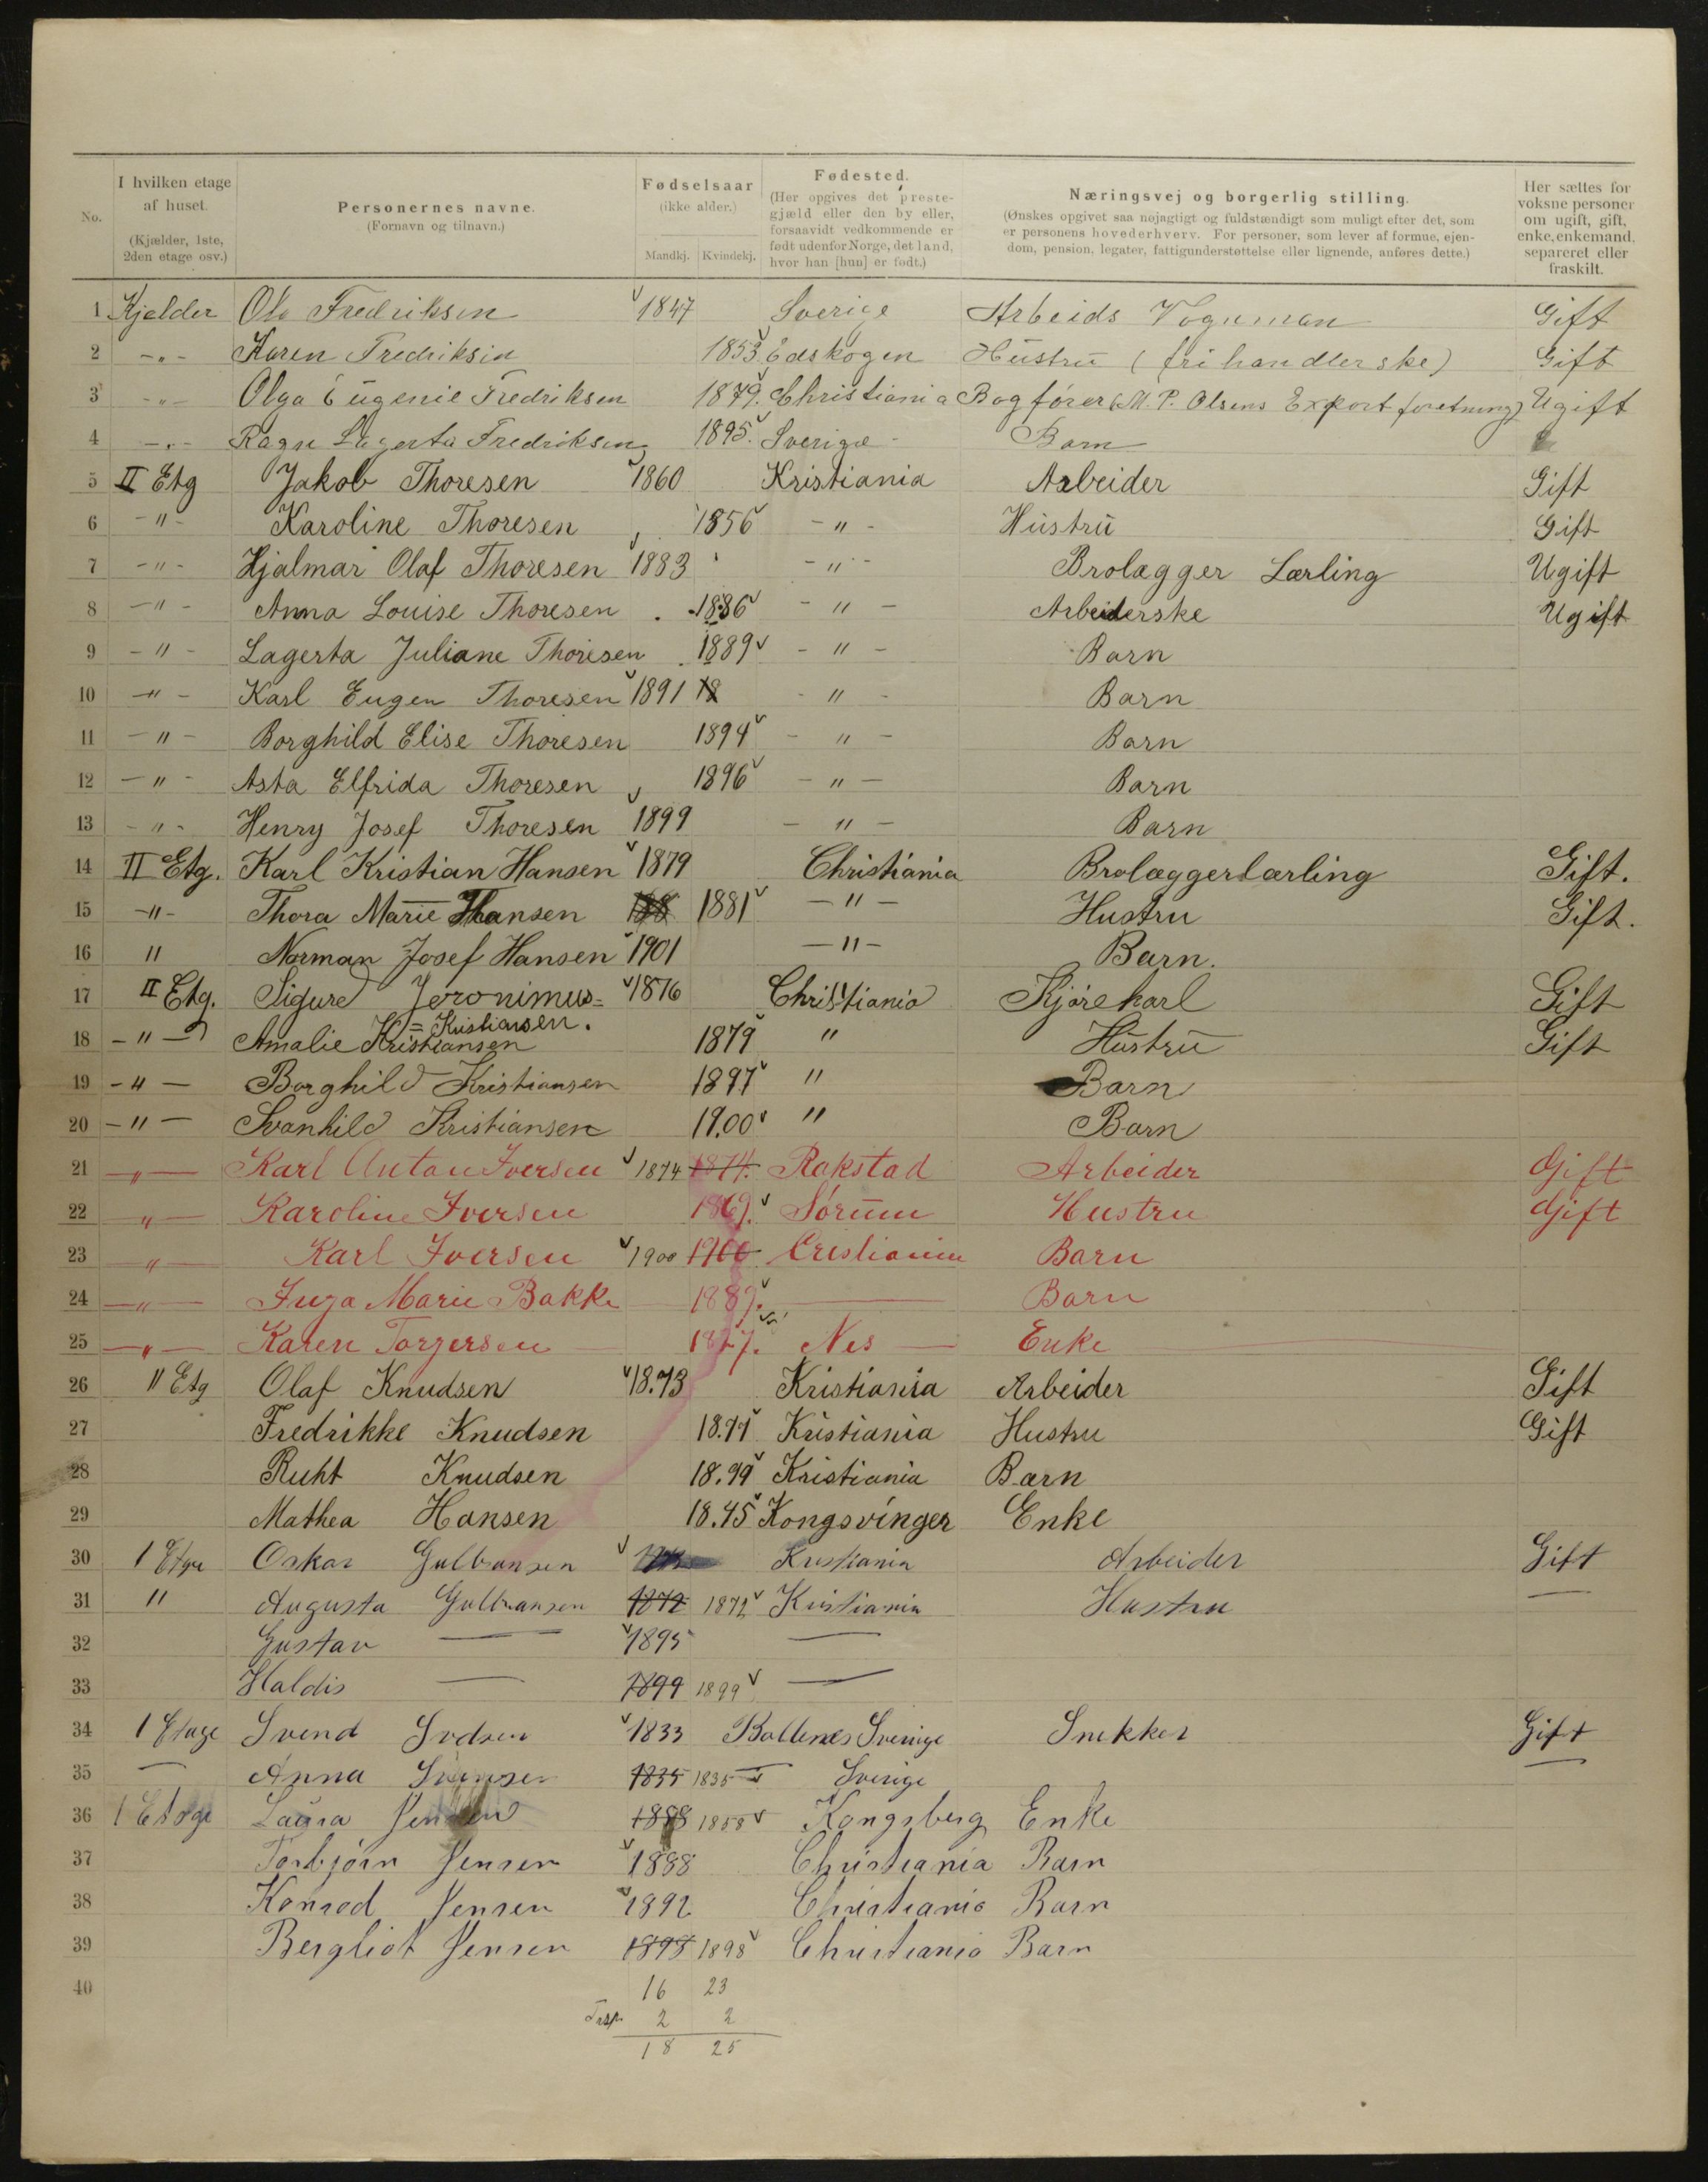 No.
I hvilken etage af huset. (Kjælder, 1ste, 2den etage osv.)
Personernes navne. (Fornavn og tilnavn.)
Fødselsaar (ikke alder.) Mandkj. Kvindekj.
Fødested. (Her opgives det præstegjæld eller den by eller, forsaavidt vedkommende er født udenfor Norge, det land, hvor han [hun] er født.)
Næringsvej og borgerlig stilling. (Ønskes opgivet saa nøjagtigt og fuldstændigt som muligt efter det, som er personens hovederhverv. For personer, som lever af formue, ejendom, pension, legater, fattigunderstøttelse eller lignende, anføres dette.)
Her sættes for voksne personer om ugift, gift, enke, enkemand, separeret eller fraskilt.
1 Kjelder Ole Fredriksen 1847 Sverige Arbeids Vognman Gift
2 -"- Karen Fredriksin 1853 Edskogen Hustru (frihandlerske) Gift
3 -"- Olga Eugenie Fredriksen 1879. Christiania Bogfører (M. P. Olsens Export foretning) Ugift
4 -"- Ragn Lagerta Fredriksen 1895. Sverige Barn
5 II Etg Jakob Thoresen 1860 Kristiania Arbeider Gift
6 -"- Karoline Thoresen 1856 -"- Hustru Gift
7 -"- Hjalmar Olaf Thoresen 1883 -"- Brolægger Lærling Ugift
8 -"- Anna Louise Thoresen 1886 -"- Arbeiderske Ugift
9 -"- Lagerta Juliane Thoresen 1889 -"- Barn
10 -"- Karl Eugen Thoresen 1891 18 -"- Barn
11 -"- Borghild Elise Thoresen 1894 -"- Barn
12 -"- Asta Elfrida Thoresen 1896 -"- Barn
13 -"- Henry Josef Thoresen 1899 -"- Barn
14 II Etg. Karl Kristian Hansen 1879 Christiania Brolæggerlærling Gift.
15 -"- Thora Marie Hansen 188 1881 -"- Hustru Gift.
16 " Norman Josef Hansen 1901 -"- Barn.
17 II Etg. Sigurd Jeronimus= 1876 Christiania Kjørekarl Gift
=Kristiansen.
18 -"- Amalie Kristiansen 1879 " Hustru Gift
19 -"- Borghild Kristiansen 1897 " Barn
20 -"- Svanhild Kristiansen 19.00 " Barn
21 -"- Karl Anton Iversen 1874 1874. Rakstad Arbeider Gift
22 -"- Karoline Iversen 1869. Sørum Hustru Gift
23 -"- Karl Iversen 1900 1900 Cristiania Barn
24 -"- Inga Marie Bakke 1889. — Barn
25 -"- Karen Torgersen 1827. Nes — Enke
26 II Etg Olaf Knudsen 18.73 Kristiania Arbeider Gift
27 Fredrikke Knudsen 18.77 Kristiania Hustru Gift
28 Ruht Knudsen 18.99 Kristiania Barn
29 Mathea Hansen 18.45 Kongsvinger Enke
30 1 Etge Oskar Gulbransen Kristiania Arbeider Gift
31 " Augusta Gulbransen 1872 1872 Kristiania Hustru —
32 Gustav — 1895 —
33 Haldis — 1899 1899 —
34 1 Etage Svend 1833 Sverige Snekker Gift
35 — Anna Svensen 1835 1835 Sverige —
36 1 Etage Laura Jensen 1858 Kongsberg Enke
37 Torbjørn Jensen 1888 Christiania Barn
38 Konrad Jensen 1892 Christiania Barn
39 Bergliot Jensen 1898 1898 Christiania Barn
40
16 23
2 2
18 25